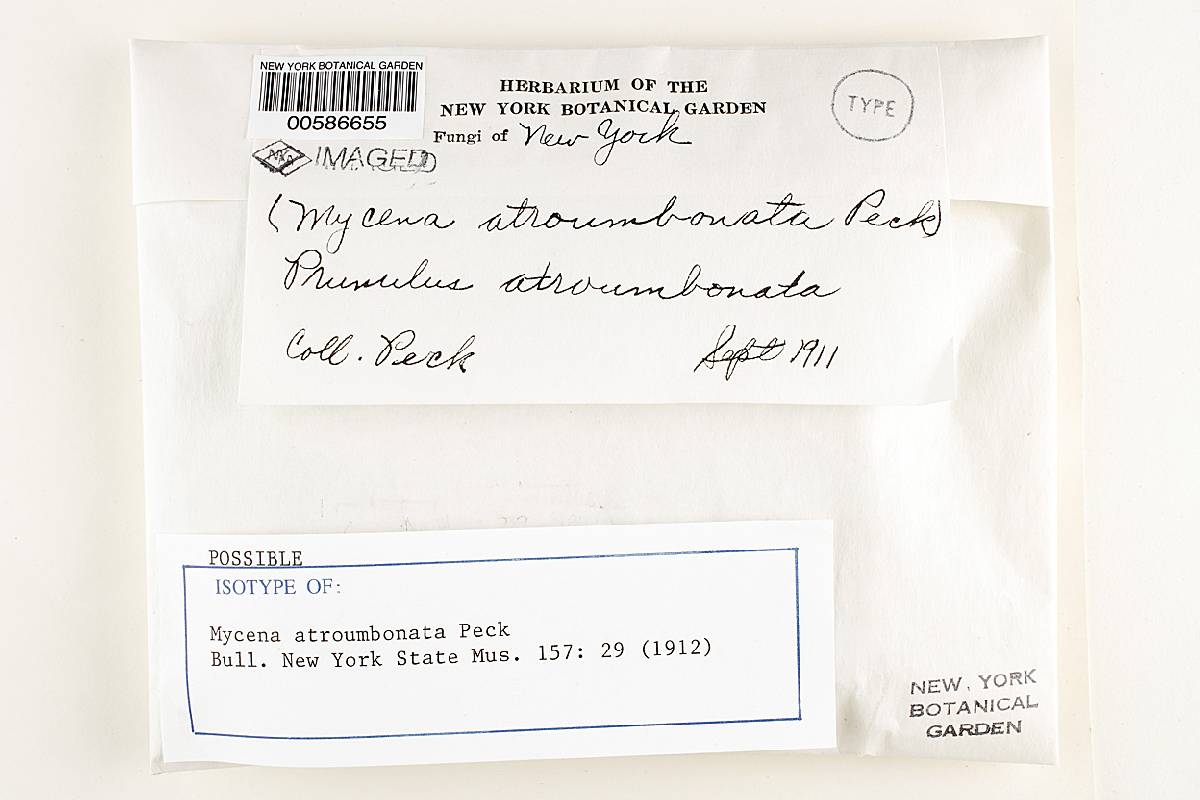 NEW YORK BOTANICAL GARDEN
00586655
HERBARIUM OF THE
NEW YORK BOTANICAL GARDEN
Fungi of New York
TYPE
IMAGED
(Mycena atroumbonata Peck)
Prunulus atroumbonata
Coll. Peck Sept 1911
POSSIBLE
ISOTYPE OF:
Mycena atroumbonata Peck
Bull. New York State Mus. 157: 29 (1912)
NEW YORK
BOTANICAL
GARDEN